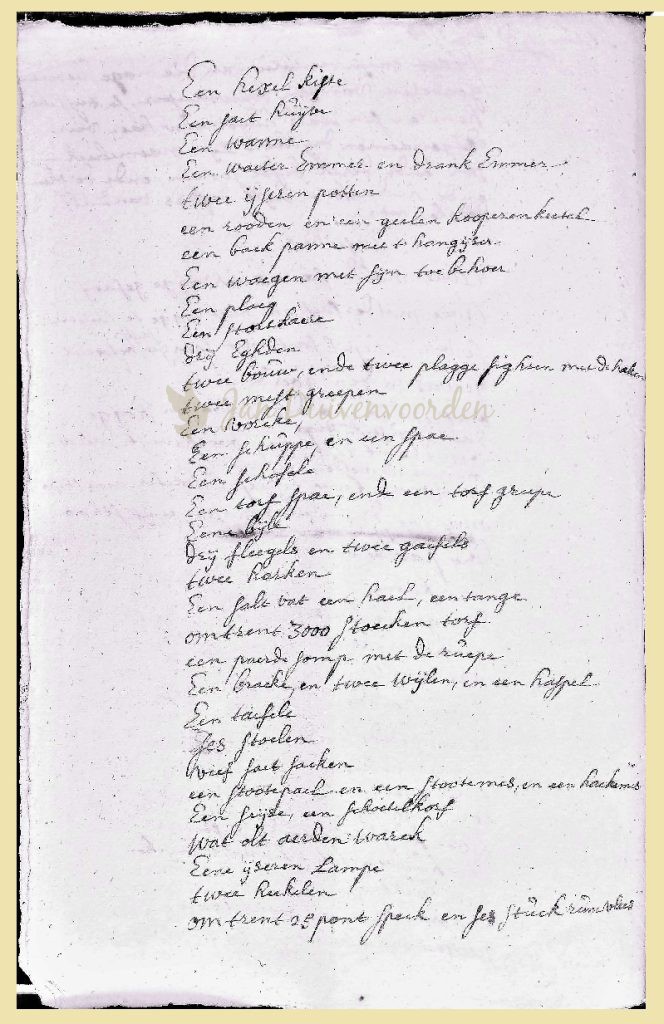 Een hexel kiste
Een saet kuijpe
Een wanne
Een waeter Emmer en drank Emmer
twee ijseren potten
een rooden en een geelen kooperen keetel
een back panne met t hangijser
Een waegen met sijn toebehoer
Een ploeg
Een stortkaere
drij Eghden
twee bouw, ende twee plagge sighten met de haken
twee mest greepen
Jan Duivenvoorden
Een vorcke,
Een schuppe, en een spae
Een schofele
Een torf spae, ende een torf greepe
Eene bijle
drij fleegels en twee gaefels
twee harken
Een salt vat een hael, een tange
omtrent 3000 stoecken torf
een paerde somp met de ruepe
Een braeke, en twee wijlen, en een haspel
Een taefele
ses stoelen
vief saet sacken
een stootepael en een stootemes, en een hackemes
Een seijse, een schoetelkorf
wat olt aerden warck
Eene ijseren Lampe
twee heekelen
omtrent 25 pont speck en ses stuck rintvlees